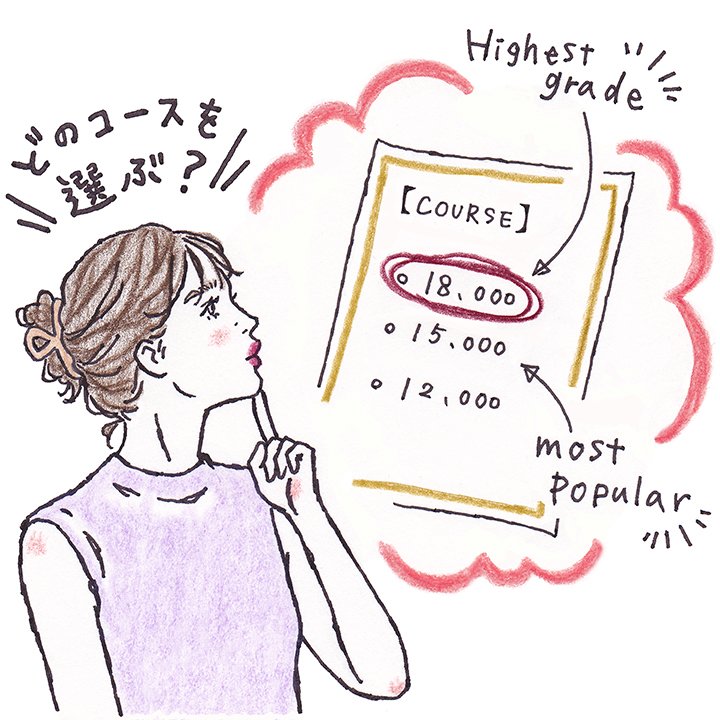 どのコースを
選ぶ?
Highest
grade
【COURSE】
○ 18、000
○ 15、000
○ 12、000
most
popular